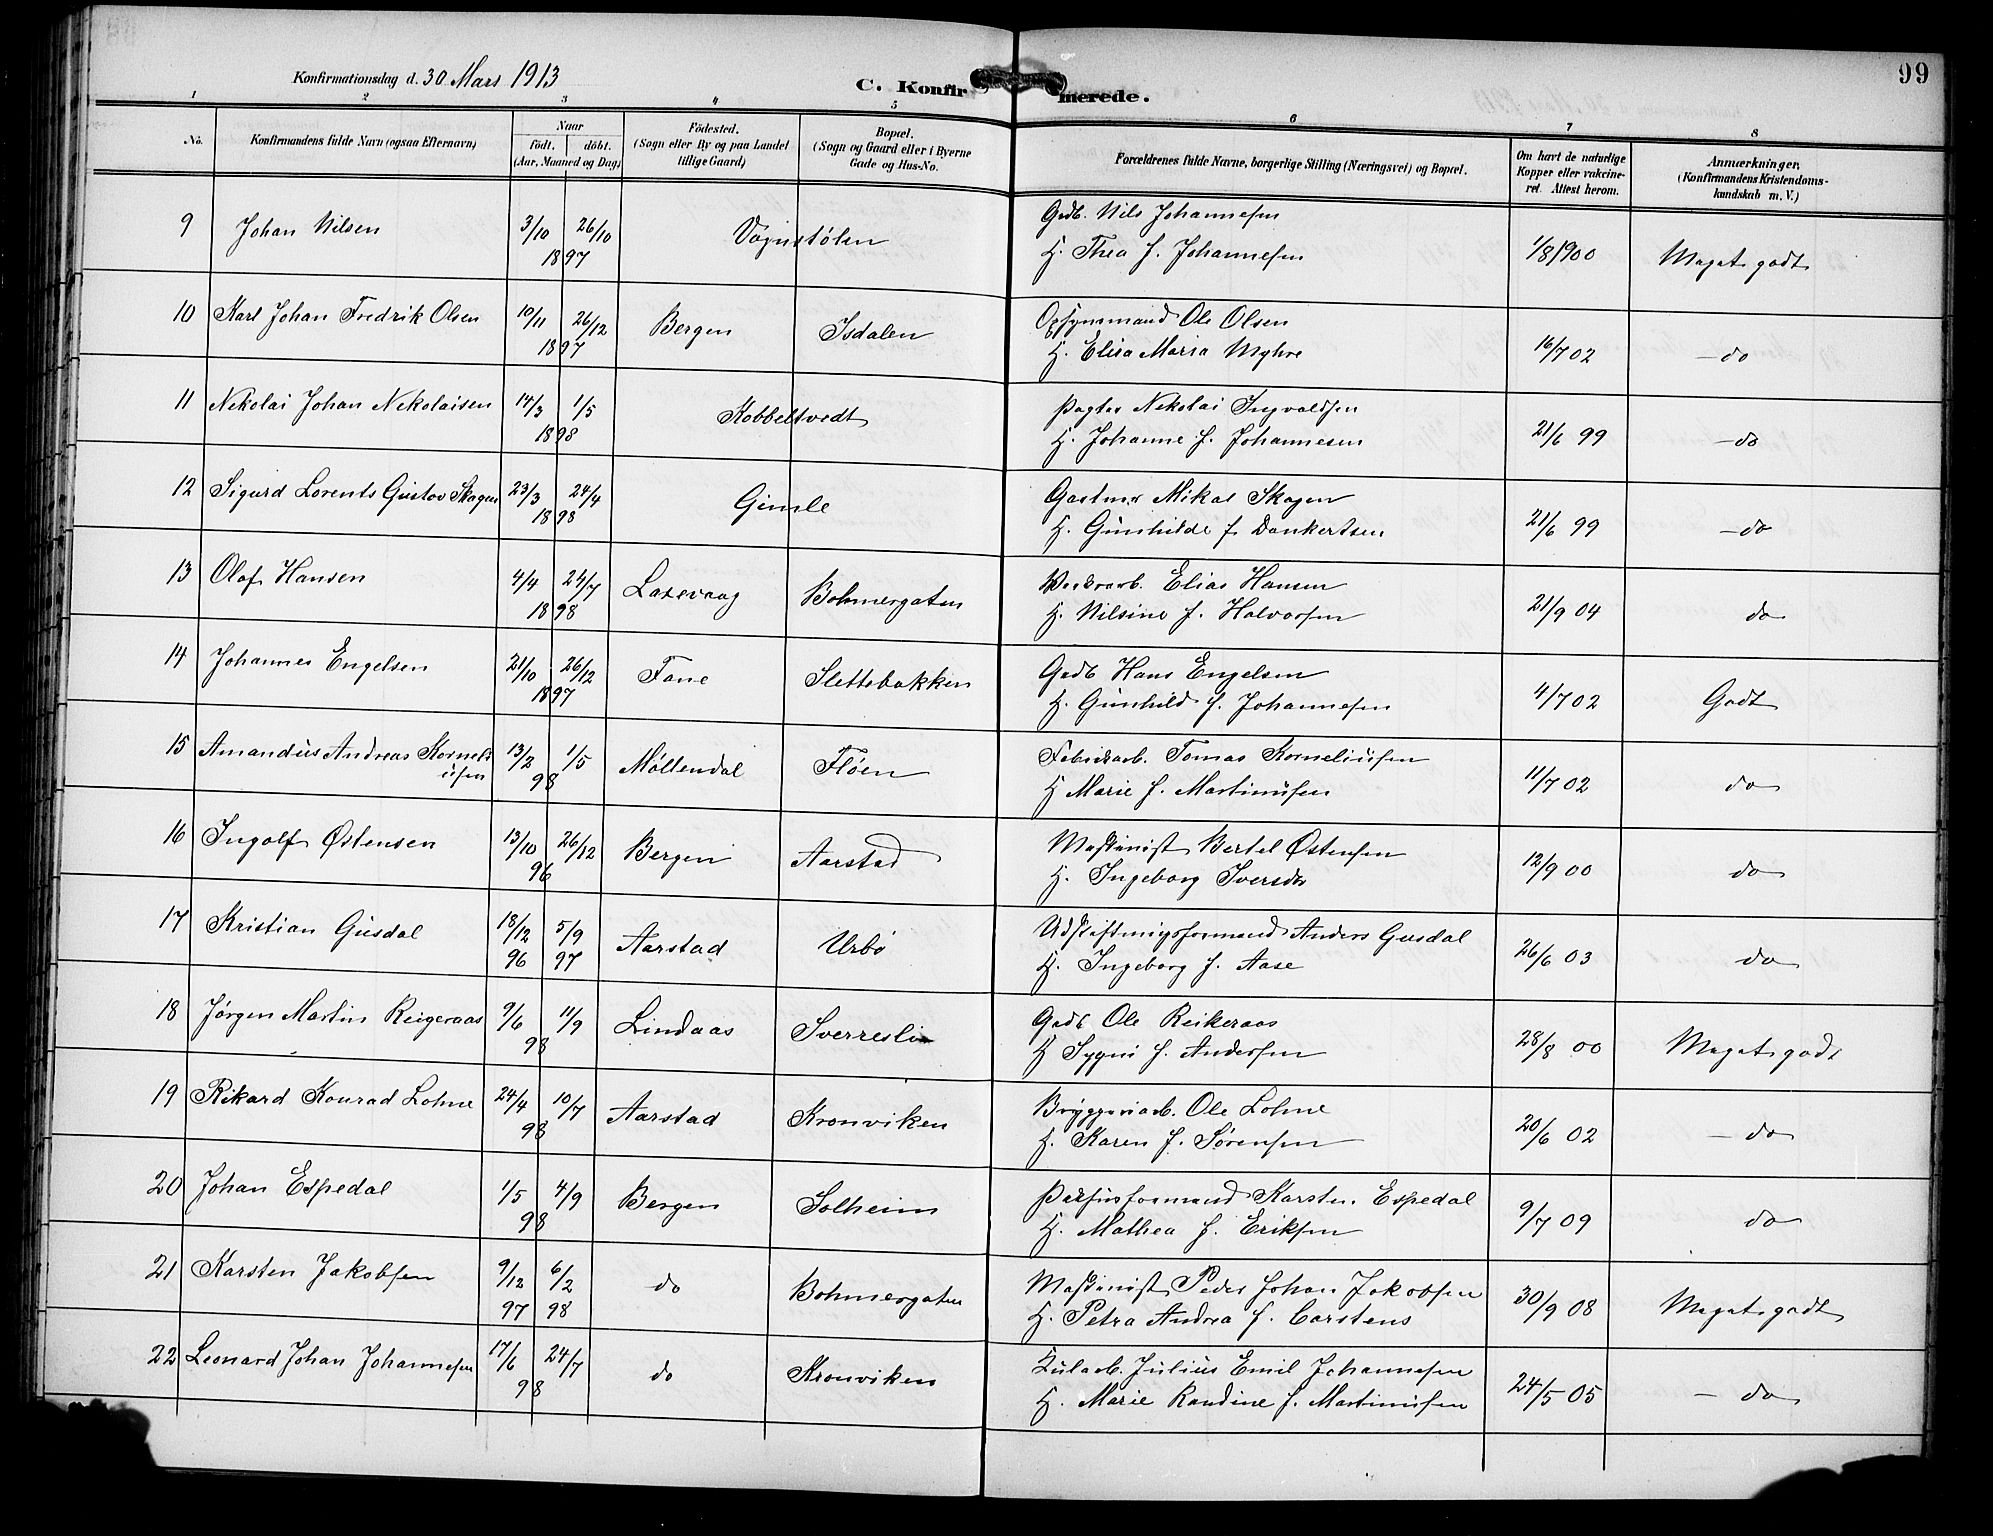 99
Konfirmationsdag d. 30 Mars 1913
C. Konfirmerede.
1 2 3 4 5 6 7 8
No.
Konfirmandens fulde Navn (ogsaa Efternavn)
Naar
födt. döbt.
(Aar, Maaned og Dag)
Födested.
(Sogn eller By og paa Landet
tillige Gaard)
Bopæl.
(Sogn og Gaard eller i Byerne
Gade og Hus-No.
Forældrenes fulde Navne, borgerlige Stilling (Næringsvei) og Bopæl.
Om havt de naturlige
Kopper eller vakcine-
ret. Attest herom.
Anmærkninger.
(Konfirmandens Kristendoms-
kundskab m. V.)
9 Johan Nilsen 3/10 26/10 1897 Vognstølen Gadb. Nils Johannesen
H. Thea f. Johannesen 1/8 1900 Meget godt
10 Karl Johan Fredrik Olsen 10/11 26/12 1897 Bergen Isdalen Opsynsmand Ole Olsen
H. Elisa Maria Myhre 16/7 02 – do
11 Nikolai Johan Nikolaisen 14/3 1/5 1898 Kobbeltvedt Pagter Nikolai Ingvaldsen
H. Johanne f. Johannesen 21/6 99 – do
12 Sigurd Lorents Gustav Skagen 23/3 24/4 1898 Gimle Mikal Skagen
H. Gunhilde f. Dankertsen 21/6 99 – do
13 Olaf Hansen 4/4 24/7 1898 Laxevaag Bohmergaten Elias Hansen
H. Nilsine f. Halvorsen 21/9 04 do
14 Johannes Engelsen 21/10 26/12 1897 Fane Slettebakken Gadb Hans Engelsen
H. Gunhild f. Johannesen 4/7 02 Godt
15 Amandus Andreas Korneli
usen 13/2 1/5 98 Møllendal Fløen Fabrikarb. Tomas Korneliusen
H Marie f. Martinusen 11/7 02 do
16 Ingolf Østensen 13/10 26/12 96 Bergen Aarstad Maskinist Bertel Østensen
H. Ingeborg Iversdr 12/9 00 do
17 Kristian Gusdal 18/12 96 5/9 97 Aarstad Urbø Udskiftningsformand Anders Gusdal
H. Ingeborg f. Aase 26/6 03 do
18 Jørgen Martin Reigeraas 9/6 11/9 98 Lindaas Sverresli Gadb Ole Reikeraas
H Sygni f. Andersen 28/8 00 Meget godt
19 Rikard Konrad Lohne 24/4 10/7 98 Aarstad Kronviken Bryggeriarb. Ole Lohne
H. Karen f. Sørensen 20/6 02 – do
20 Johan Espedal 1/5 4/9 98 Bergen Solheim Karsten Espedal
H. Mathea f. Eriksen 9/7 09 do
21 Karsten Jakobsen 9/12 97 6/2 98 do Bohmergaten Maskinist Peder Johan Jakobsen
H. Petra Andrea f. Carstens 30/9 08 Meget godt
22 Leonard Johan Johannesen 17/6 24/7 98 do Kronviken Julius Emil Johannesen
H. Marie Randine f. Martinusen 24/5 05 – do